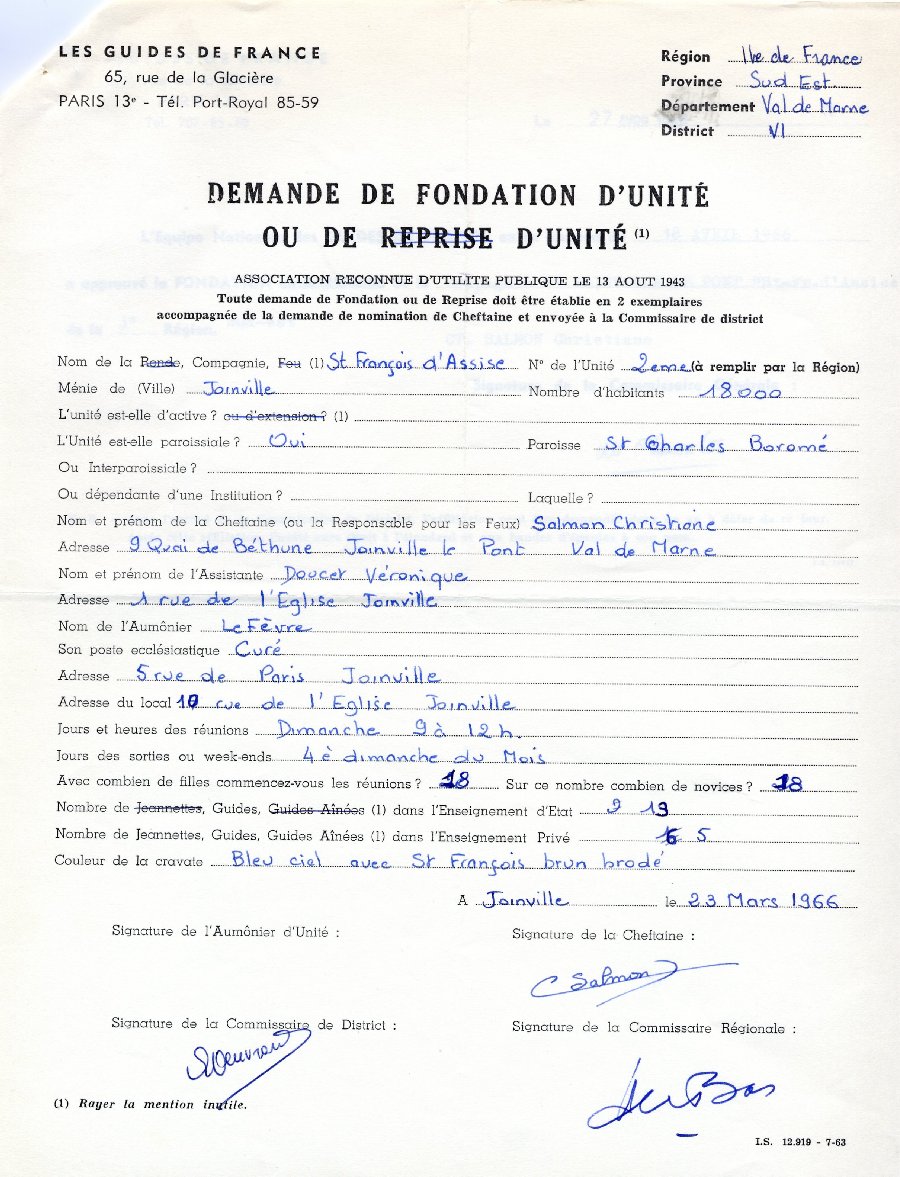 LES GUIDES DE FRANCE
65, rue de la Glacière
PARIS 13e - Tél. Port-Royal 85-59
Région Ile de France
Province Sud Est
Département Val de Marne
District VI
DEMANDE DE FONDATION D'UNITÉ
OU DE REPRISE D'UNITÉ (1)
ASSOCIATION RECONNUE D'UTILITE PUBLIQUE LE 13 AOUT 1943
Toute demande de Fondation ou de Reprise doit être établie en 2 exemplaires
accompagnée de la demande de nomination de Cheftaine et envoyée à la Commissaire de district
Nom de la Ronde, Compagnie, Feu (1) St François d'Assise N° de l'Unité 2eme (à remplir par la Région)
Ménie de (Ville) Joinville Nombre d'habitants 18000
L'unité est-elle d'active ? ou d'extension ? (1)
L'Unité est-elle paroissiale ? Oui Paroisse St Charles Boromé
Ou Interparoissiale ?
Ou dépendante d'une Institution ? Laquelle ?
Nom et prénom de la Cheftaine (ou la Responsable pour les Feux) Salmon Christiane
Adresse 9 Quai de Béthune Joinville le Pont Val de Marne
Nom et prénom de l'Assistante Doucet Véronique
Adresse 1 rue de l'Eglise Joinville
Nom de l'Aumônier LeFèvre
Son poste ecclésiastique Curé
Adresse 5 rue de Paris Joinville
Adresse du local 10 rue de l'Eglise Joinville
Jours et heures des réunions Dimanche 9 à 12 h.
Jours des sorties ou week-ends 4è dimanche du Mois
Avec combien de filles commencez-vous les réunions ? 18 Sur ce nombre combien de novices ? 18
Nombre de Jeannettes, Guides, Guides Aînées (1) dans l'Enseignement d'Etat 13
Nombre de Jeannettes, Guides, Guides Aînées (1) dans l'Enseignement Privé 5
Couleur de la cravate Bleu ciel avec St François brun brodé
A Joinville le 23 Mars 1966
Signature de l'Aumônier d'Unité :
Signature de la Cheftaine :
C Salmon
Signature de la Commissaire de District :
Signature de la Commissaire Régionale :
(1) Rayer la mention inutile.
I.S. 12.919 - 7-63